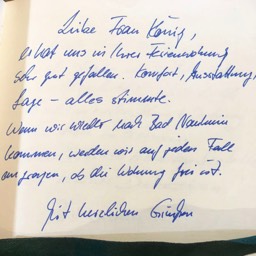 Liebe Frau König,
es hat uns in Ihrer Ferienwohnung
sehr gut gefallen. Komfort, Ausstattung,
Lage - alles stimmte.
Wenn wir wieder nach Bad Nauheim
kommen, werden wir auf jeden Fall
anfragen, ob die Wohnung frei ist.
Mit herzlichen Grüßen